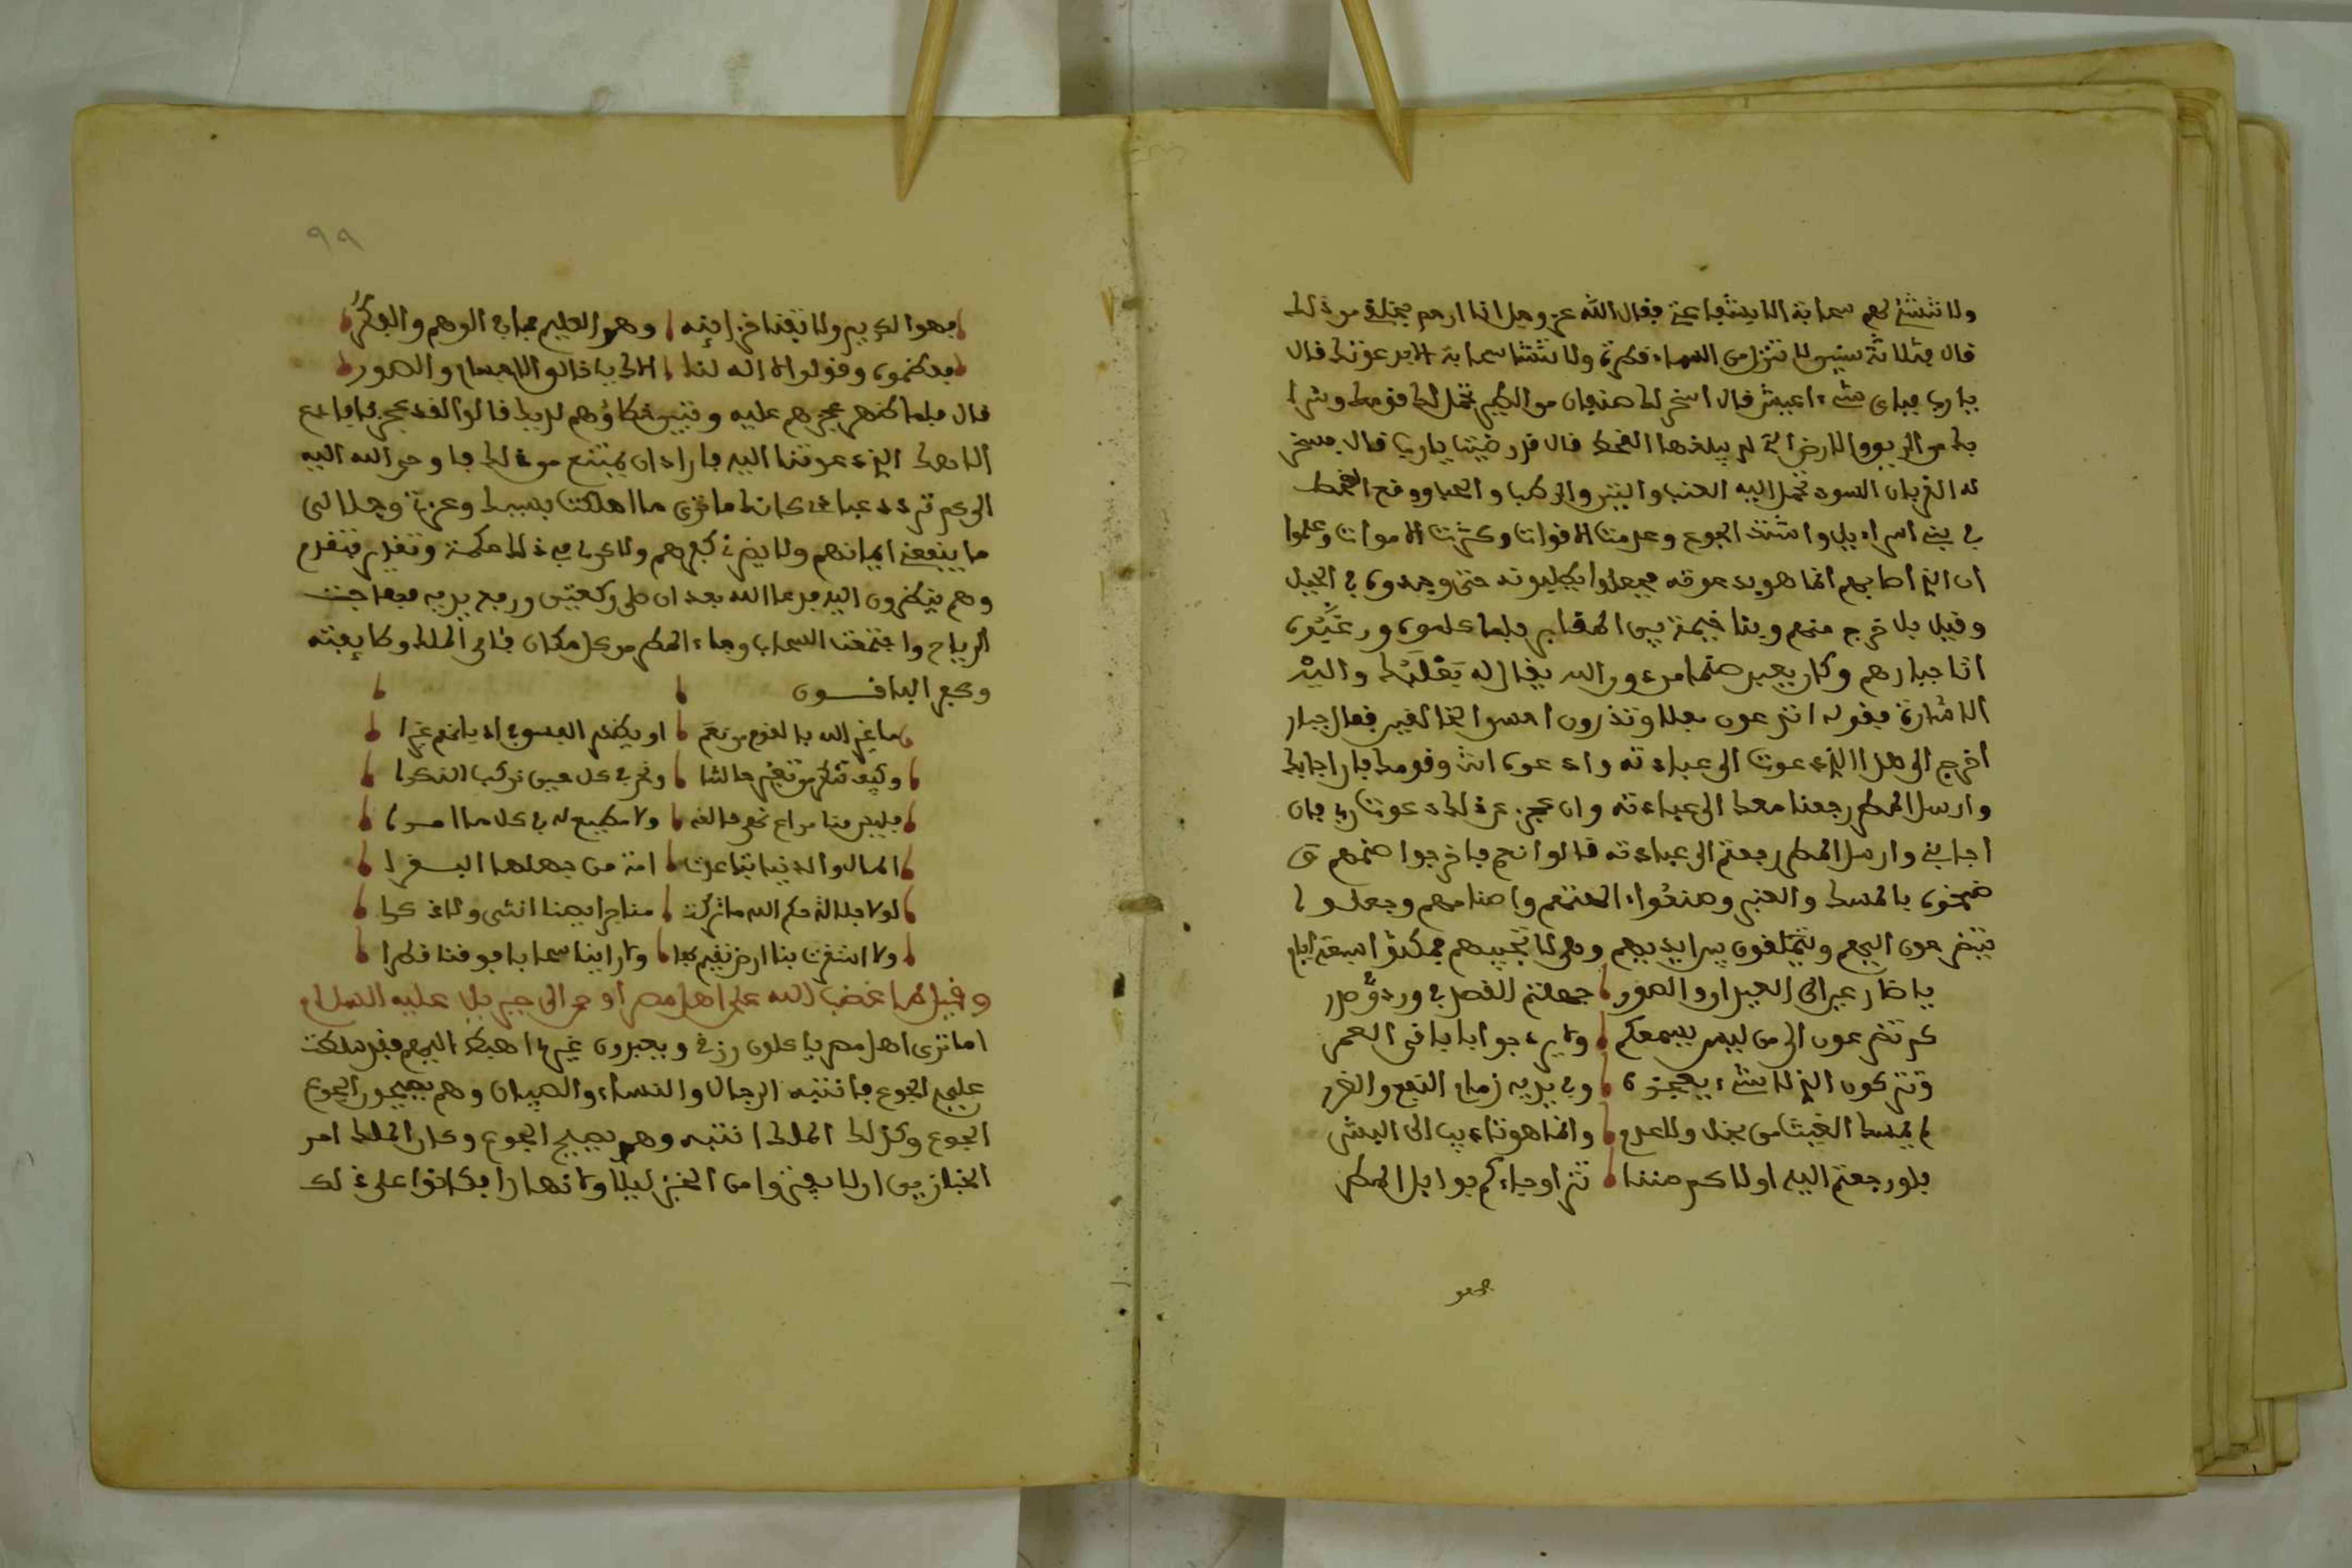 ولا تنشئ لهم سحابة الا بشفاعتي فقال الله عز وجل انا ارحم بخلقي من ذلك
قال فثلاثة سنين لا تنزل من السماء قطرة ولا تنشا سحابة الا بدعوتك قال
يا رب فباي شيء اعيش قال اسخر لك هذان من الطير تحمل لك قوتك وشرا
بك من الريف والارض التي لم يبلغها القحط قال قد رضيت يا رب قال فسخر
له الغربان السود تحمل اليه العنب والتين والرطب والحب ووقع القحط
في بني اسراءيل واشتد الجوع وعدمت الاقوات وكثرت الاموات وعلموا
ان الذي اصابهم انما هو بدعوته فجعلوا يطلبونه حتى وجدوه في الجبل
وقيل بل خرج منهم وبنا خيمة بين المقابر فلما علموه
اتا جبارهم وكان يعبد صنما من دون الله يقال له بعلبك والـيه
الاشارة بقوله اتدعون بعلا وتذرون احسن الخالقين فقال جبار
اخرج الى هذا الذي دعوت الى عبادته وادعوه انت وقومك فان اجابك
وارسل المطر رجعنا معك الى عبادته وان عجز عن ذلك دعوت ربي فان
اجابني وارسل المطر رجعتم الى عبادته قالوا نعم فاخرجوا صنمهم و
ضمخوه بالمسك والعنبر وصنعوا اطعمتهم واصنامهم وجعلوا
يتضرعون اليهم ويتملقون بين ايديهم وهي لا تجيبهم فمكثوا سبعة ايام
كم تدعون الى من ليس يسمعكم ولا يرد جوابا باقي العمر
وتتركون الذي لا شيء يعجزه وفي يديه زمام النفع والضرر
لم يمسك الغيث من بخل ولا عدم وانما هو تاديب الى البشر
فلو رجعتم اليه اولا كرمننا ثم او جاءكم بوابل المطر
فهو
٩٩
فهو الكريم ولا تفنا خزاينه وهو العليم بما في الوهم والفكر
فعظموه وقولوا لا اله لنا الا يا خالق الاجسام والصور
قال فلما ظهر عجزهم عليه وتبين خطاؤهم لديه قالوا لقد عجزنا فادع
الاهك الذي دعوتنا اليه فاراد ان يمتنع من ذلك فاوحى الله اليه
الى كم تردد عبادي كانك ما ترى ما اهلكت بسببك وعزتي وجلالي
ما ينفعني ايمانهم ولا يضرني كفرهم ولاكن في ذلك حكمة وتقدير فتقدم
وهم ينظرون اليه فدعا الله بعد ان صلى ركعتين ورفع يديه فهاجت
الرياح واجتمعت السحاب وجاء المطر من كل مكان فامن الملك وطايفته
وكفر الباقون
ما غير الله بالقوم من نعم او يظهر الفسق اذ ياتهم غيرا
وكيف تنكر من تغيير حالتنا ونحن في كل حين نركب النكرا
فليجر منا مراع نحو خالقه ولا مطيع له في كل ما امرا
المال والدنيا بنا عرت امة من جهلها البقرا
لولا جلالة حكم الله ما تركت منا جرايمنا انثى ولا ذكرا
ولا استقرت بنا ارض نقيم بها ولا راينا سحابا فوقنا قطرا
وقيل لما غضب الله على اهل مصر اوحى الى جبريل عليه السلام
اما ترى اهل مصر ياكلون رزقي ويعبدون غيري اهبط اليهم فقد سلطت
عليهم الجوع فانتبه الرجال والنساء والصبيان وهم يصيحون الجوع
الجوع وكذلك الملك انتبه وهو يصيح الجوع وكان الملك امر
الخبازين ان لا يفتروا من الخبز ليلا ولا نهارا فكانوا على ذلك